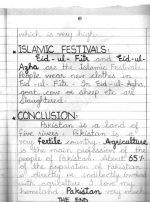 which is very high.
ISLAMIC FESTIVALS:
Eid-ul-Fitr and Eid-ul-
Azha are the Islamic Festivals.
People wear new clothes in
Eid-ul-Fitr. In Eid-ul-Azha,
goat, cow or sheep etc are
Slaughtered.
CONCLUSION:
Pakistan is a land of
five rivers. Pakistan is a
very fertile country. Agriculture
is the main profession of the
people of Pakistan. About 65%
of the population of Pakistan
is directly or indirectly involved
with agriculture. I love my
homeland Pakistan very much.
THE END